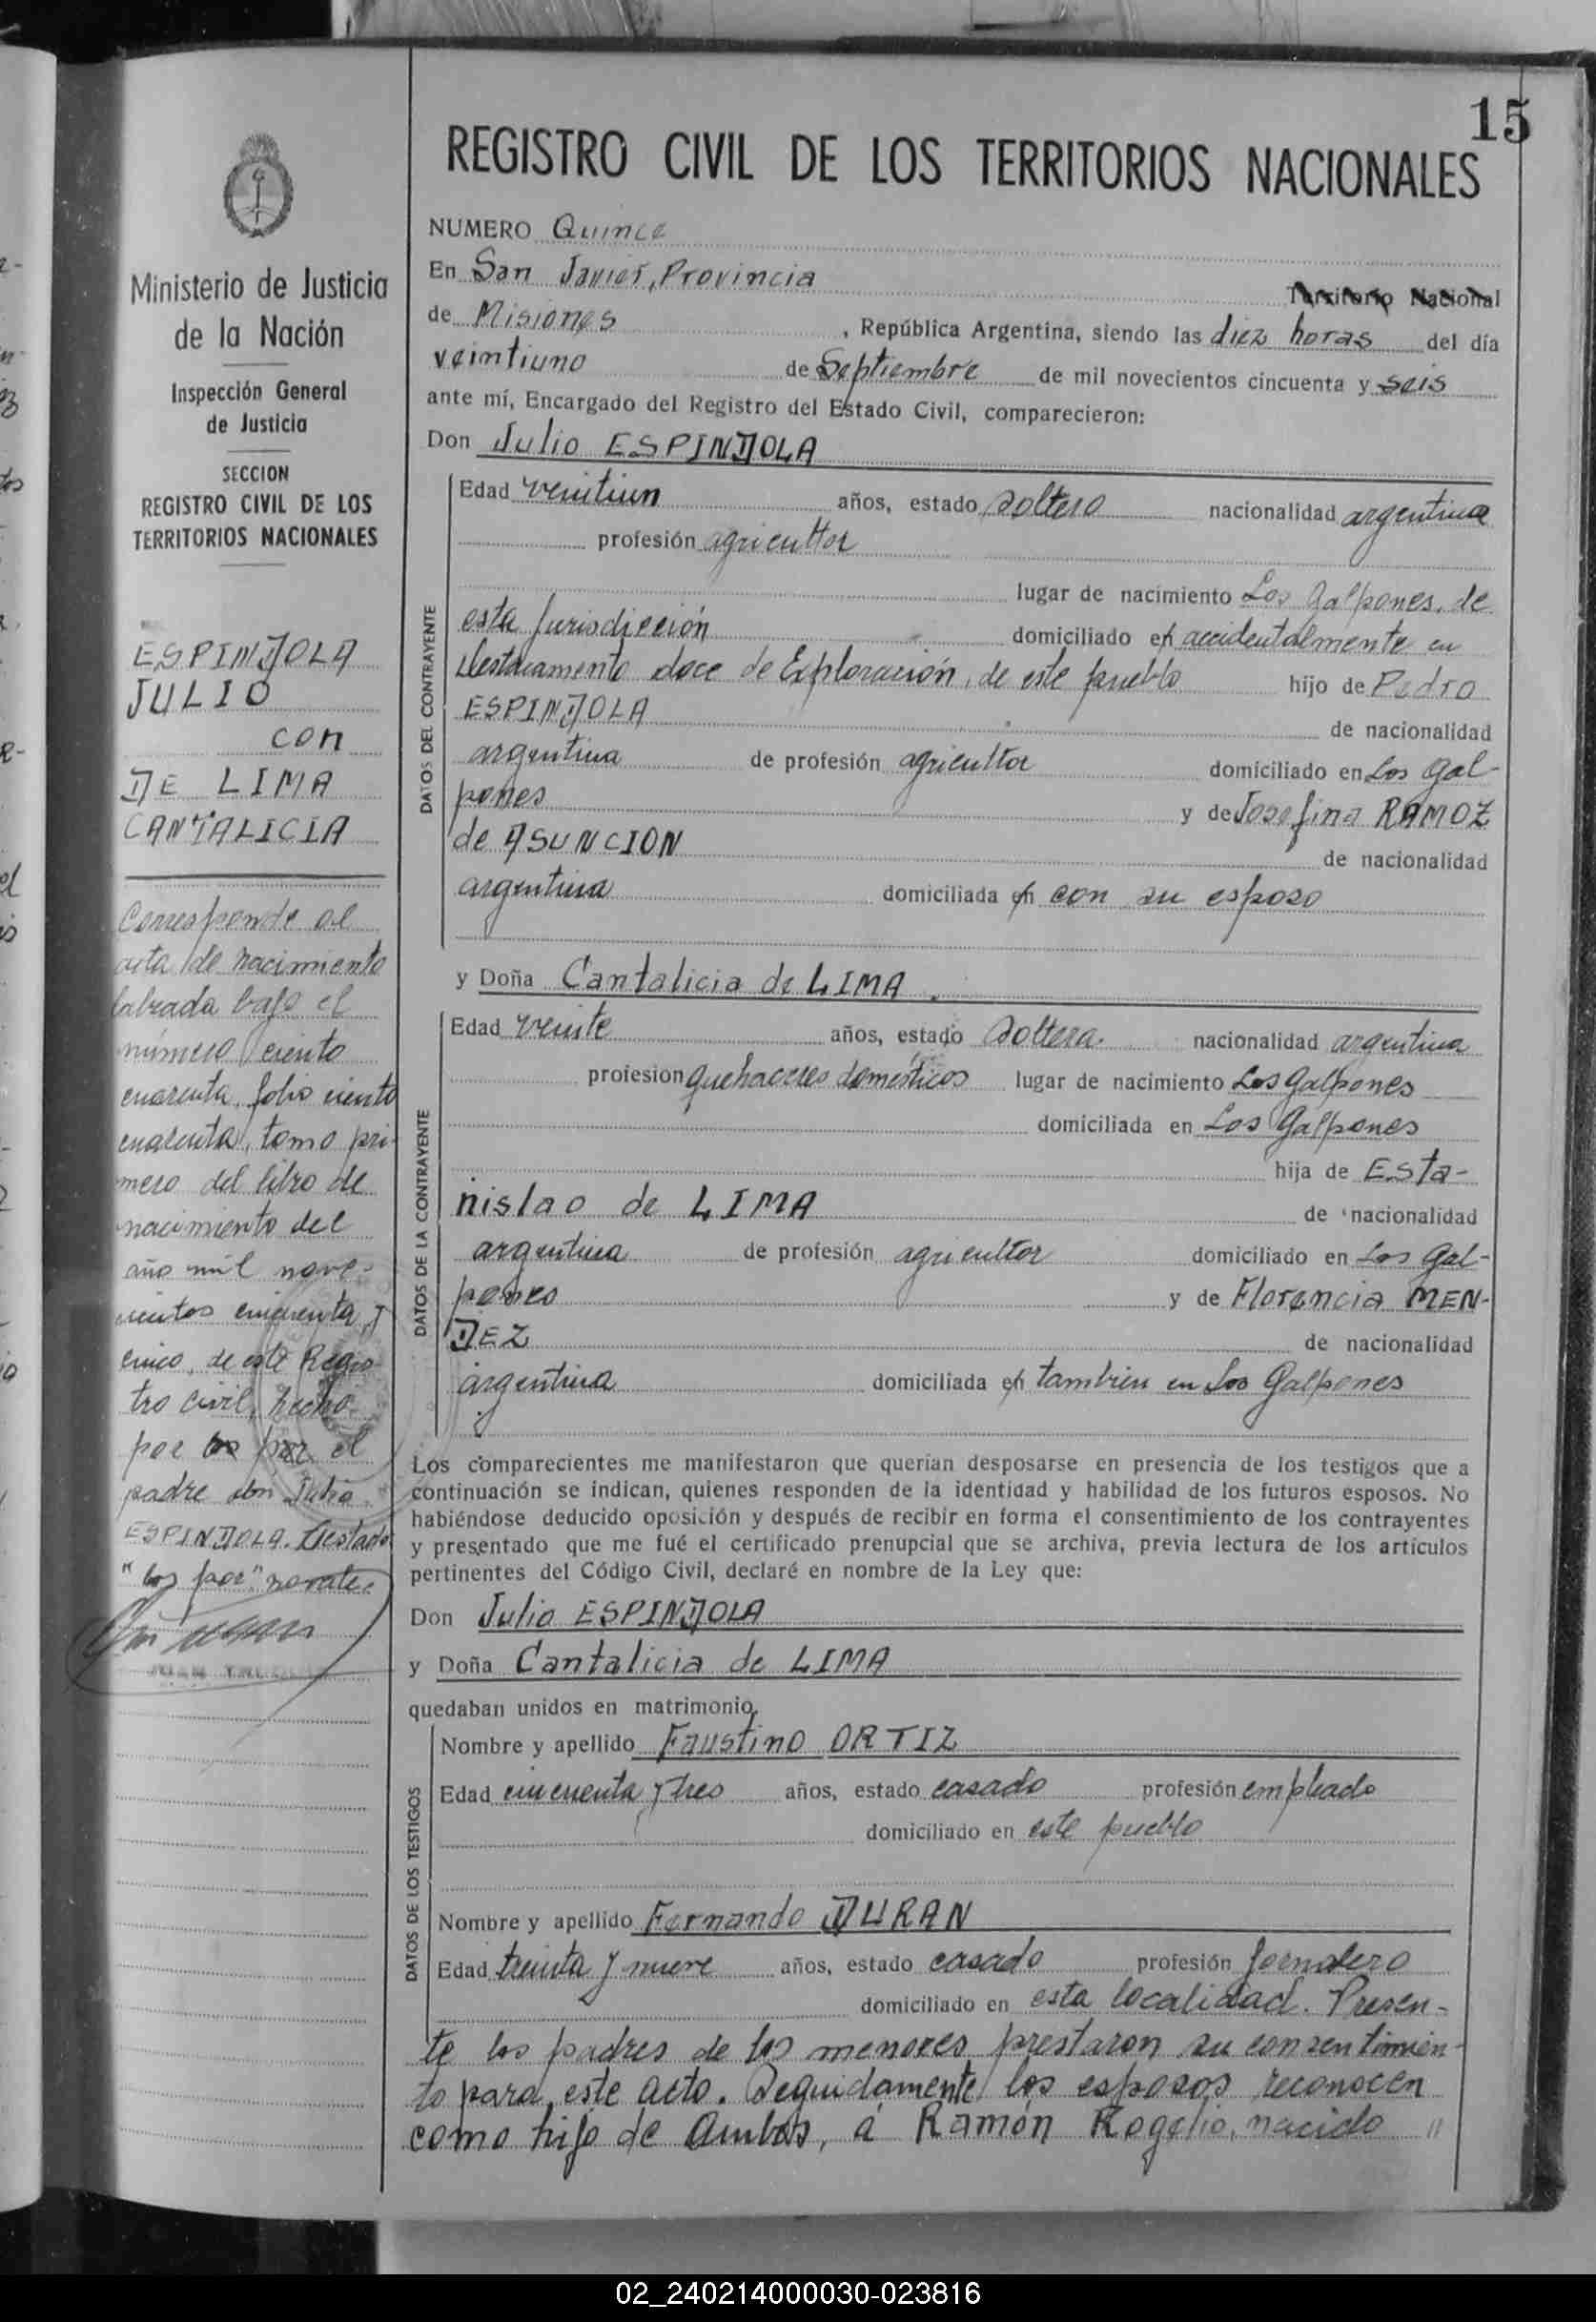 15
REGISTRO CIVIL DE LOS TERRITORIOS NACIONALES
NUMERO Quince
En San Javier, Provincia Territorio Nacional
de Misiones, República Argentina, siendo las diez horas del día
veintiuno de Septiembre de mil novecientos cincuenta y seis
ante mí, Encargado del Registro del Estado Civil, comparecieron:
Don Julio ESPINDOLA
DATOS DEL CONTRAYENTE
Edad veintiun años, estado soltero nacionalidad argentina
profesión agricultor
lugar de nacimiento Los Galpones, de
esta jurisdicción domiciliado en accidentalmente en
Destacamento doce de Exploración, de este pueblo hijo de Pedro
ESPINDOLA de nacionalidad
argentina de profesión agricultor domiciliado en Los Gal-
pones y de Josefina RAMOZ
de ASUNCION de nacionalidad
argentina domiciliada en con su esposo
y Doña Cantalicia de LIMA.
DATOS DE LA CONTRAYENTE
Edad veinte años, estado soltera. nacionalidad argentina
profesion quehaceres domésticos lugar de nacimiento Los Galpones
domiciliada en Los Galpones
hija de Esta-
nislao de LIMA de nacionalidad
argentina de profesión agricultor domiciliado en Los Gal-
pones y de Florencia MEN-
DEZ de nacionalidad
argentina domiciliada en tambien en Los Galpones
Los comparecientes me manifestaron que querían desposarse en presencia de los testigos que a
continuación se indican, quienes responden de la identidad y habilidad de los futuros esposos. No
habiéndose deducido oposición y después de recibir en forma el consentimiento de los contrayentes
y presentado que me fué el certificado prenupcial que se archiva, previa lectura de los artículos
pertinentes del Código Civil, declaré en nombre de la Ley que:
Don Julio ESPINDOLA
y Doña Cantalicia de LIMA
quedaban unidos en matrimonio,
DATOS DE LOS TESTIGOS
Nombre y apellido Faustino ORTIZ
Edad cincuenta y tres años, estado casado profesión empleado
domiciliado en este pueblo
Nombre y apellido Fernando DURAN
Edad treinta y nueve años, estado casado profesión jornalero
domiciliado en esta localidad. Presen-
te los padres de los menores prestaron su consentimien-
to para este acto. Seguidamente los esposos reconocen
como hijo de ambos, á Ramón Rogelio, nacido //
Ministerio de Justicia
de la Nación
Inspección General
de Justicia
SECCION
REGISTRO CIVIL DE LOS
TERRITORIOS NACIONALES
ESPINDOLA
JULIO
con
DE LIMA
CANTALICIA
Corresponde al
acta de nacimiento
labrada bajo el
número ciento
cuarenta, folio ciento
cuarenta, tomo pri-
mero del libro de
nacimiento del
año mil nove-
cientos cincuenta y
cinco, de este Regis-
tro Civil, hecho
por los por el
padre don Julio
ESPINDOLA. Testado
"los por" no vale.
02_240214000030-023816